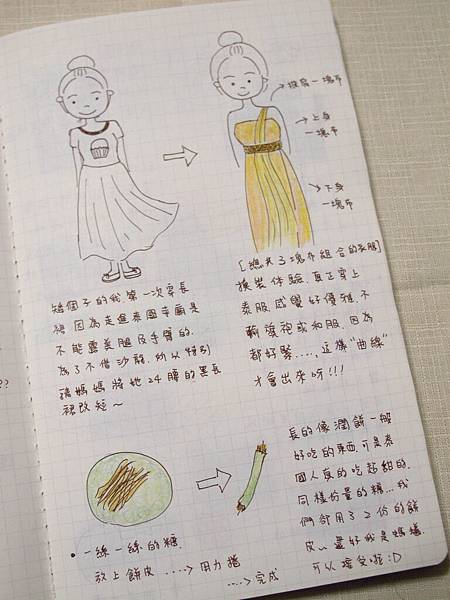 披肩一塊布
上身
一塊布
下身
一塊布
矮個子的我第一次穿長
裙 因為走進泰國寺廟是
不能露美腿及手臂的.
為了不借沙龍,所以特別
請媽媽將她24腰的黑長
裙改短~
[總共3塊布組合的衣服]
換裝体驗.真正穿上
泰服感覺好優雅.不
輸旗袍或和服.因為
都好緊....,這樣"曲線"
才會出來呀!!!
??
長的像潤餅一般
好吃的東西,可是泰
國人真的吃超甜的.
同樣份量的糖...我
們卻用了2份的餅
皮~還好我是螞蟻.
可以接受啦:D
• 一絲一絲的糖.
放上餅皮 ----> 用力捲
----> 完成